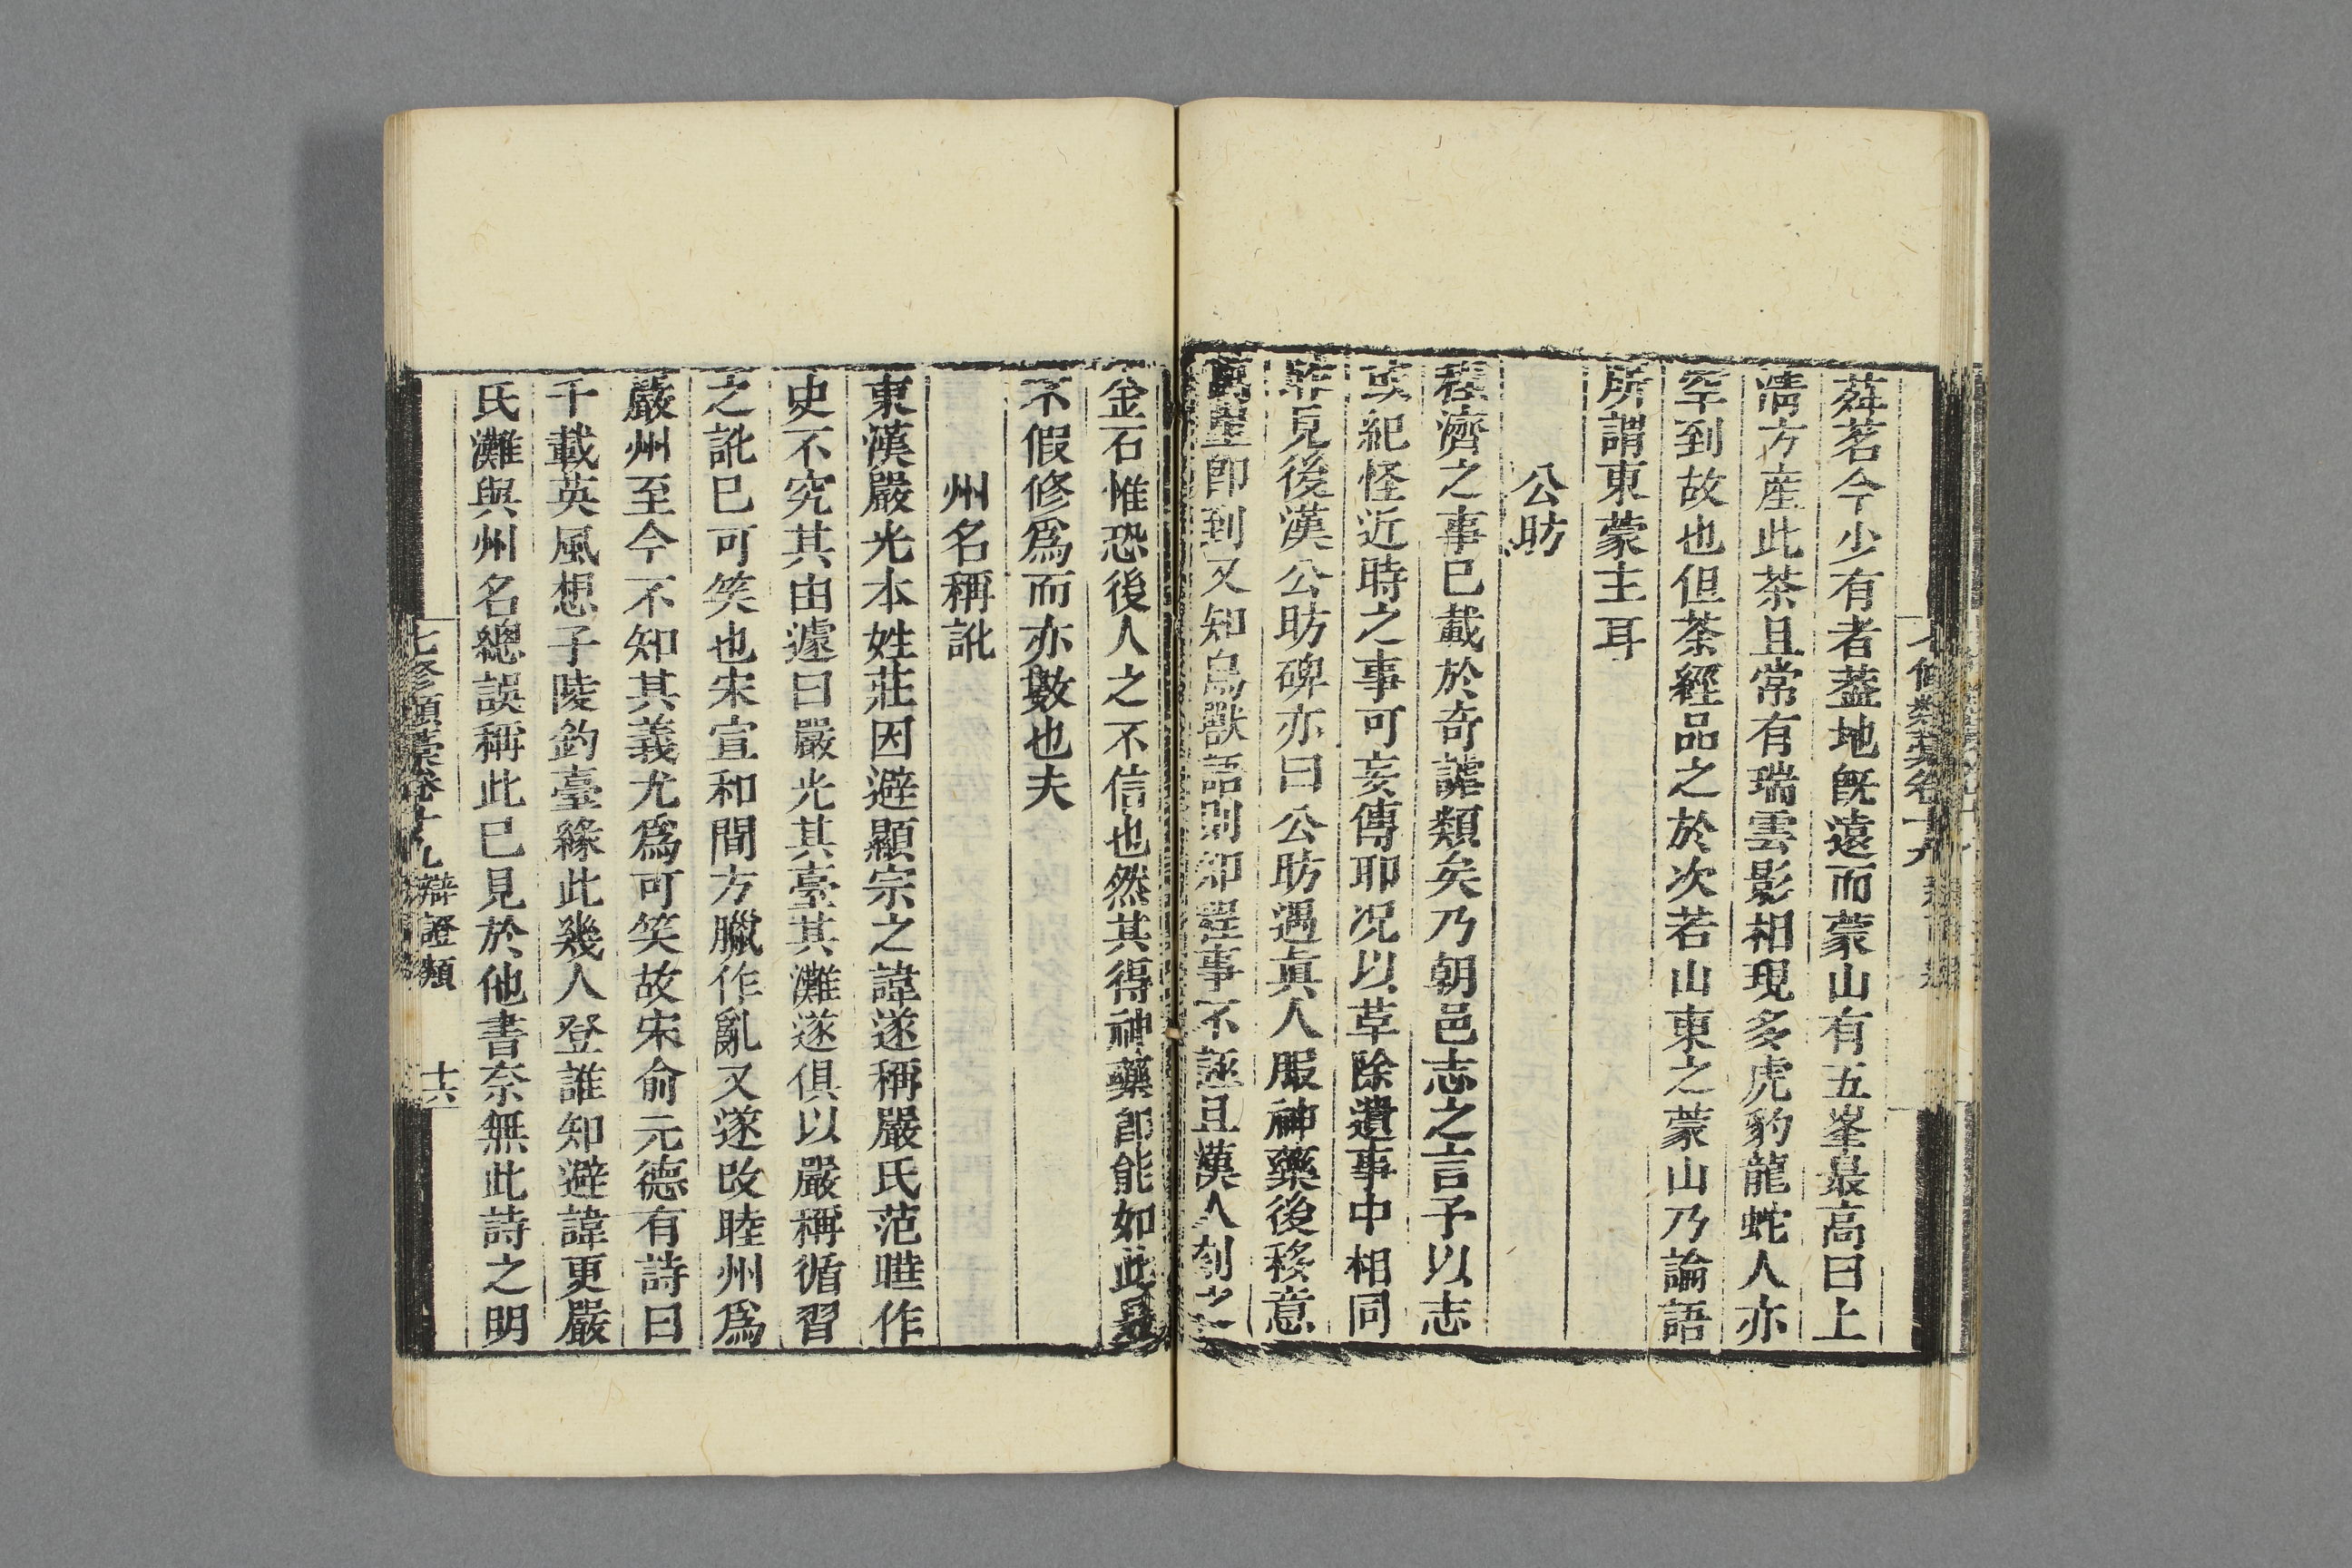 荈茗今少有者蓋地旣遠而蒙山有五峯最高曰上
淸方産此茶且常有瑞雲影相現多虎豹龍蛇人亦
罕到故也但茶經品之於次若山東之蒙山乃論語
所謂東蒙主耳
公昉
程濟之事已載於奇謔類矣乃朝邑志之言予以志
實紀怪近時之事可妄傳耶况以草除遺事中相同
昨見後漢公昉碑亦曰公昉遇眞人服神藥後移意
萬里卽到又知鳥獸語則知程事不誣且漢人刻之
金石惟恐後人之不信也然其得神藥卽能如此
不假修爲而亦數也夫
州名稱訛
東漢嚴光本姓莊因避顯宗之諱遂稱嚴氏范曄作
史不究其由遽曰嚴光其臺其灘遂俱以嚴稱循習
之訛已可笑也宋宣和間方臘作亂又遂改睦州爲
嚴州至今不知其義尤爲可笑故宋俞元德有詩曰
千載英風想子陵釣臺緣此幾人登誰知避諱更嚴
氏灘與州名總誤稱此已見於他書奈無此詩之明
七修類藁卷十九 辯證類 十六